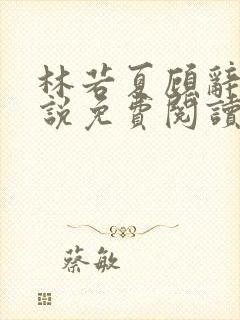 林若夏顾辭
說免費閱讀
蔡敏